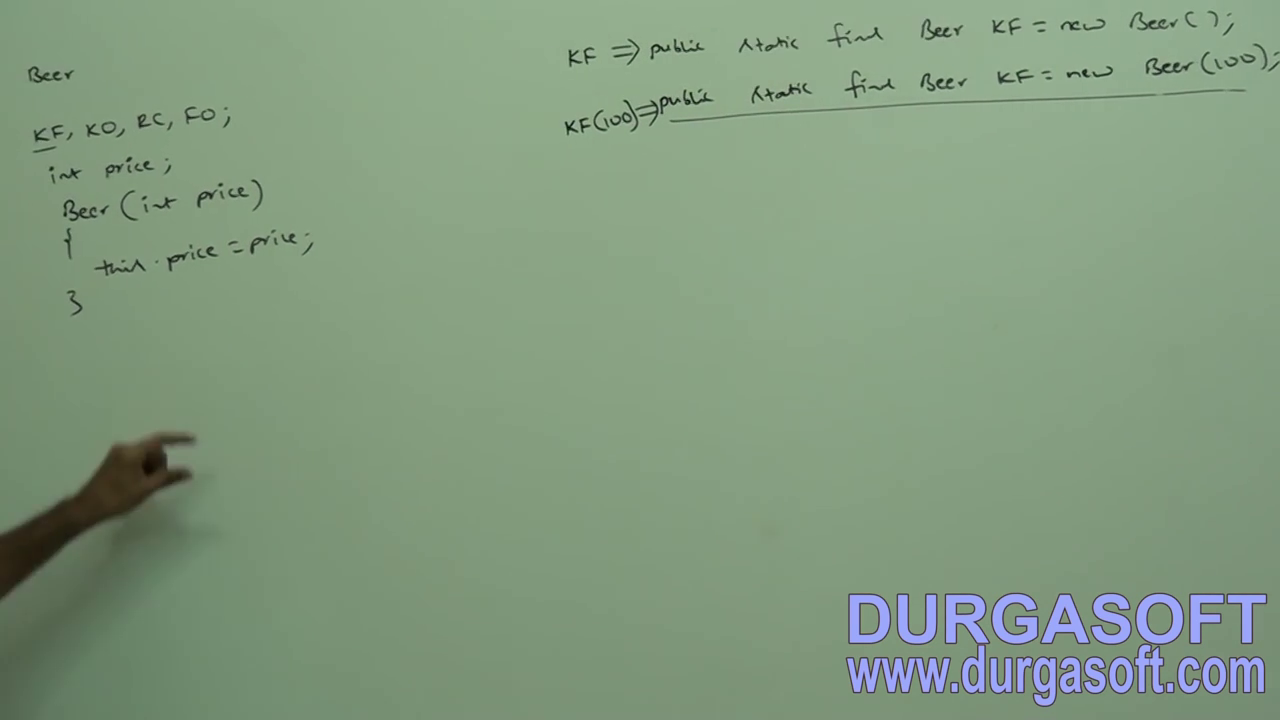 Beer
KF, KO, RC, FO;
int price;
Beer (int price)
{
this.price = price;
}
KF ⇒ public static final Beer KF = new Beer();
KF(100) ⇒ public static final Beer KF = new Beer(100);
DURGASOFT
www.durgasoft.com